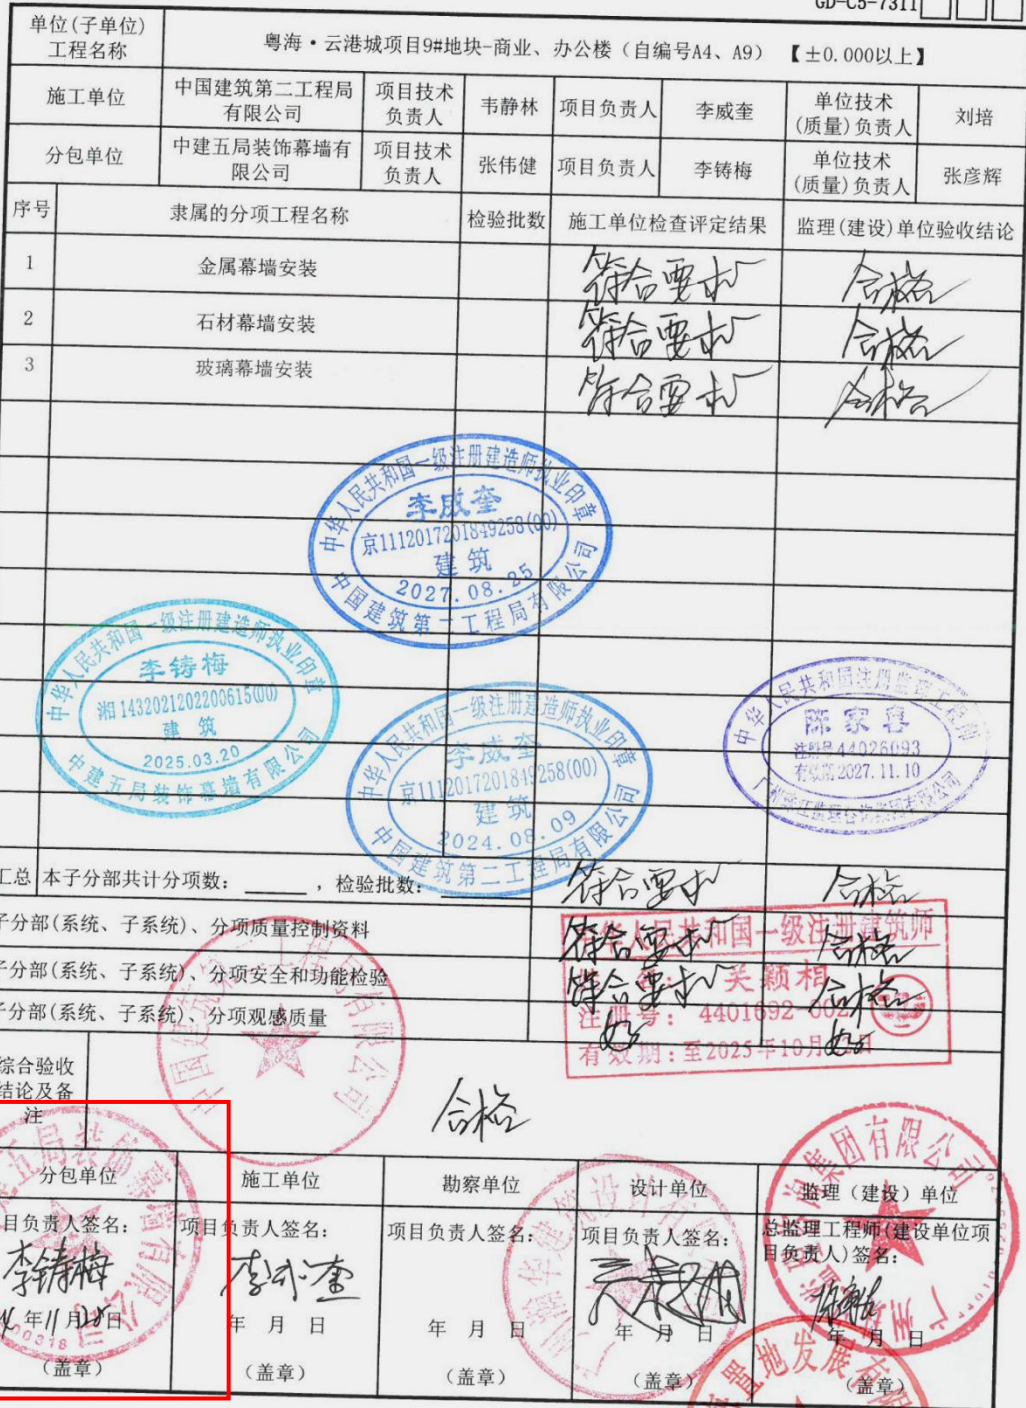 GD-C5-7311
单位(子单位)
工程名称
粤海·云港城项目9#地块-商业、办公楼（自编号A4、A9）【±0.000以上】
施工单位
中国建筑第二工程局
有限公司
项目技术
负责人
韦静林
项目负责人
李威奎
单位技术
(质量)负责人
刘培
分包单位
中建五局装饰幕墙有
限公司
项目技术
负责人
张伟健
项目负责人
李铸梅
单位技术
(质量)负责人
张彦辉
序号
隶属的分项工程名称
检验批数
施工单位检查评定结果
监理(建设)单位验收结论
1
金属幕墙安装
符合要求
合格
2
石材幕墙安装
符合要求
合格
3
玻璃幕墙安装
符合要求
合格
中华人民共和国一级注册建造师执业印章
李威奎
京1112017201849258(00)
建筑
2027.08.25
中国建筑第二工程局有限公司
中华人民共和国一级注册建造师执业印章
李铸梅
湘1432021202200615(00)
建筑
2025.03.20
中建五局装饰幕墙有限公司
中华人民共和国一级注册建造师执业印章
李威奎
京1112017201849258(00)
建筑
2024.08.09
中国建筑第二工程局有限公司
中华人民共和国注册监理工程师
陈家喜
注册号44026093
有效期2027.11.10
汇总
本子分部共计分项数：，检验批数：
符合要求
合格
子分部(系统、子系统)、分项质量控制资料
符合要求
合格
子分部(系统、子系统)、分项安全和功能检验
符合要求
合格
子分部(系统、子系统)、分项观感质量
好
好
中华人民共和国一级注册建筑师
关颖相
注册号：4401692-002
有效期：至2025年10月
中国建筑第二工程局有限公司
综合验收
结论及备
注
合格
五局装饰幕墙有限公司
分包单位
施工单位
勘察单位
设计单位
监理（建设）单位
目负责人签名：
项目负责人签名：
项目负责人签名：
项目负责人签名：
总监理工程师(建设单位项
目负责人)签名：
李铸梅
李威奎
年11月28日
年 月 日
年 月 日
年 月 日
年 月 日
（盖章）
（盖章）
（盖章）
（盖章）
（盖章）
置地发展有限